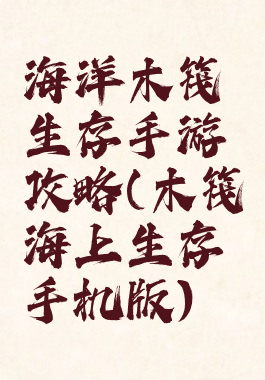 海洋木筏
生存手游
攻略(木筏
海上生存
手机版)